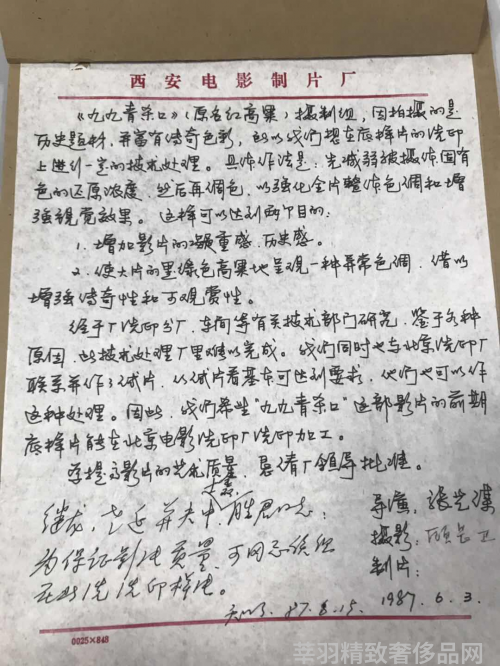 西安电影制片厂
《九九青杀口》(原名红高粱)摄制组,因拍摄的是
历史题材,并富有传奇色彩,所以我们想在底样片的洗印
上进行一定的技术处理。具体作法是:先减弱被摄体固有
色的还原浓度,然后再调色,以强化全片整体色调和增
强视觉效果。这样可以达到两个目的:
1.增加影片的凝重感、历史感。
2.使大片的墨绿色高粱地呈现一种异常色调,借以
增强传奇性和可观赏性。
经于厂洗印分厂、车间等有关技术部门研究,鉴于各种
原因,此技术处理厂里难以完成。我们同时也与北京洗印厂
联系并作了试片,从试片看基本可达到要求,他们也可以作
这种处理。因此,我们希望"九九青杀口"这部影片的前期
底样片能在北京电影洗印厂洗印加工。
为提高影片的艺术质量,恳请厂领导批准。
导演:张艺谋
摄影:顾长卫
制片:
1987.6.3.
并
同志:
为保证影片质量,可同意
在北洗洗印样片。
87.6.15.
0025×848
莘羽精致奢侈品网